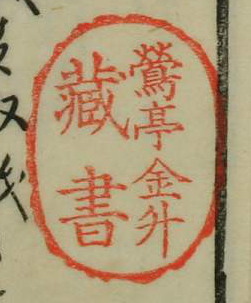 鶯亭金升
藏書